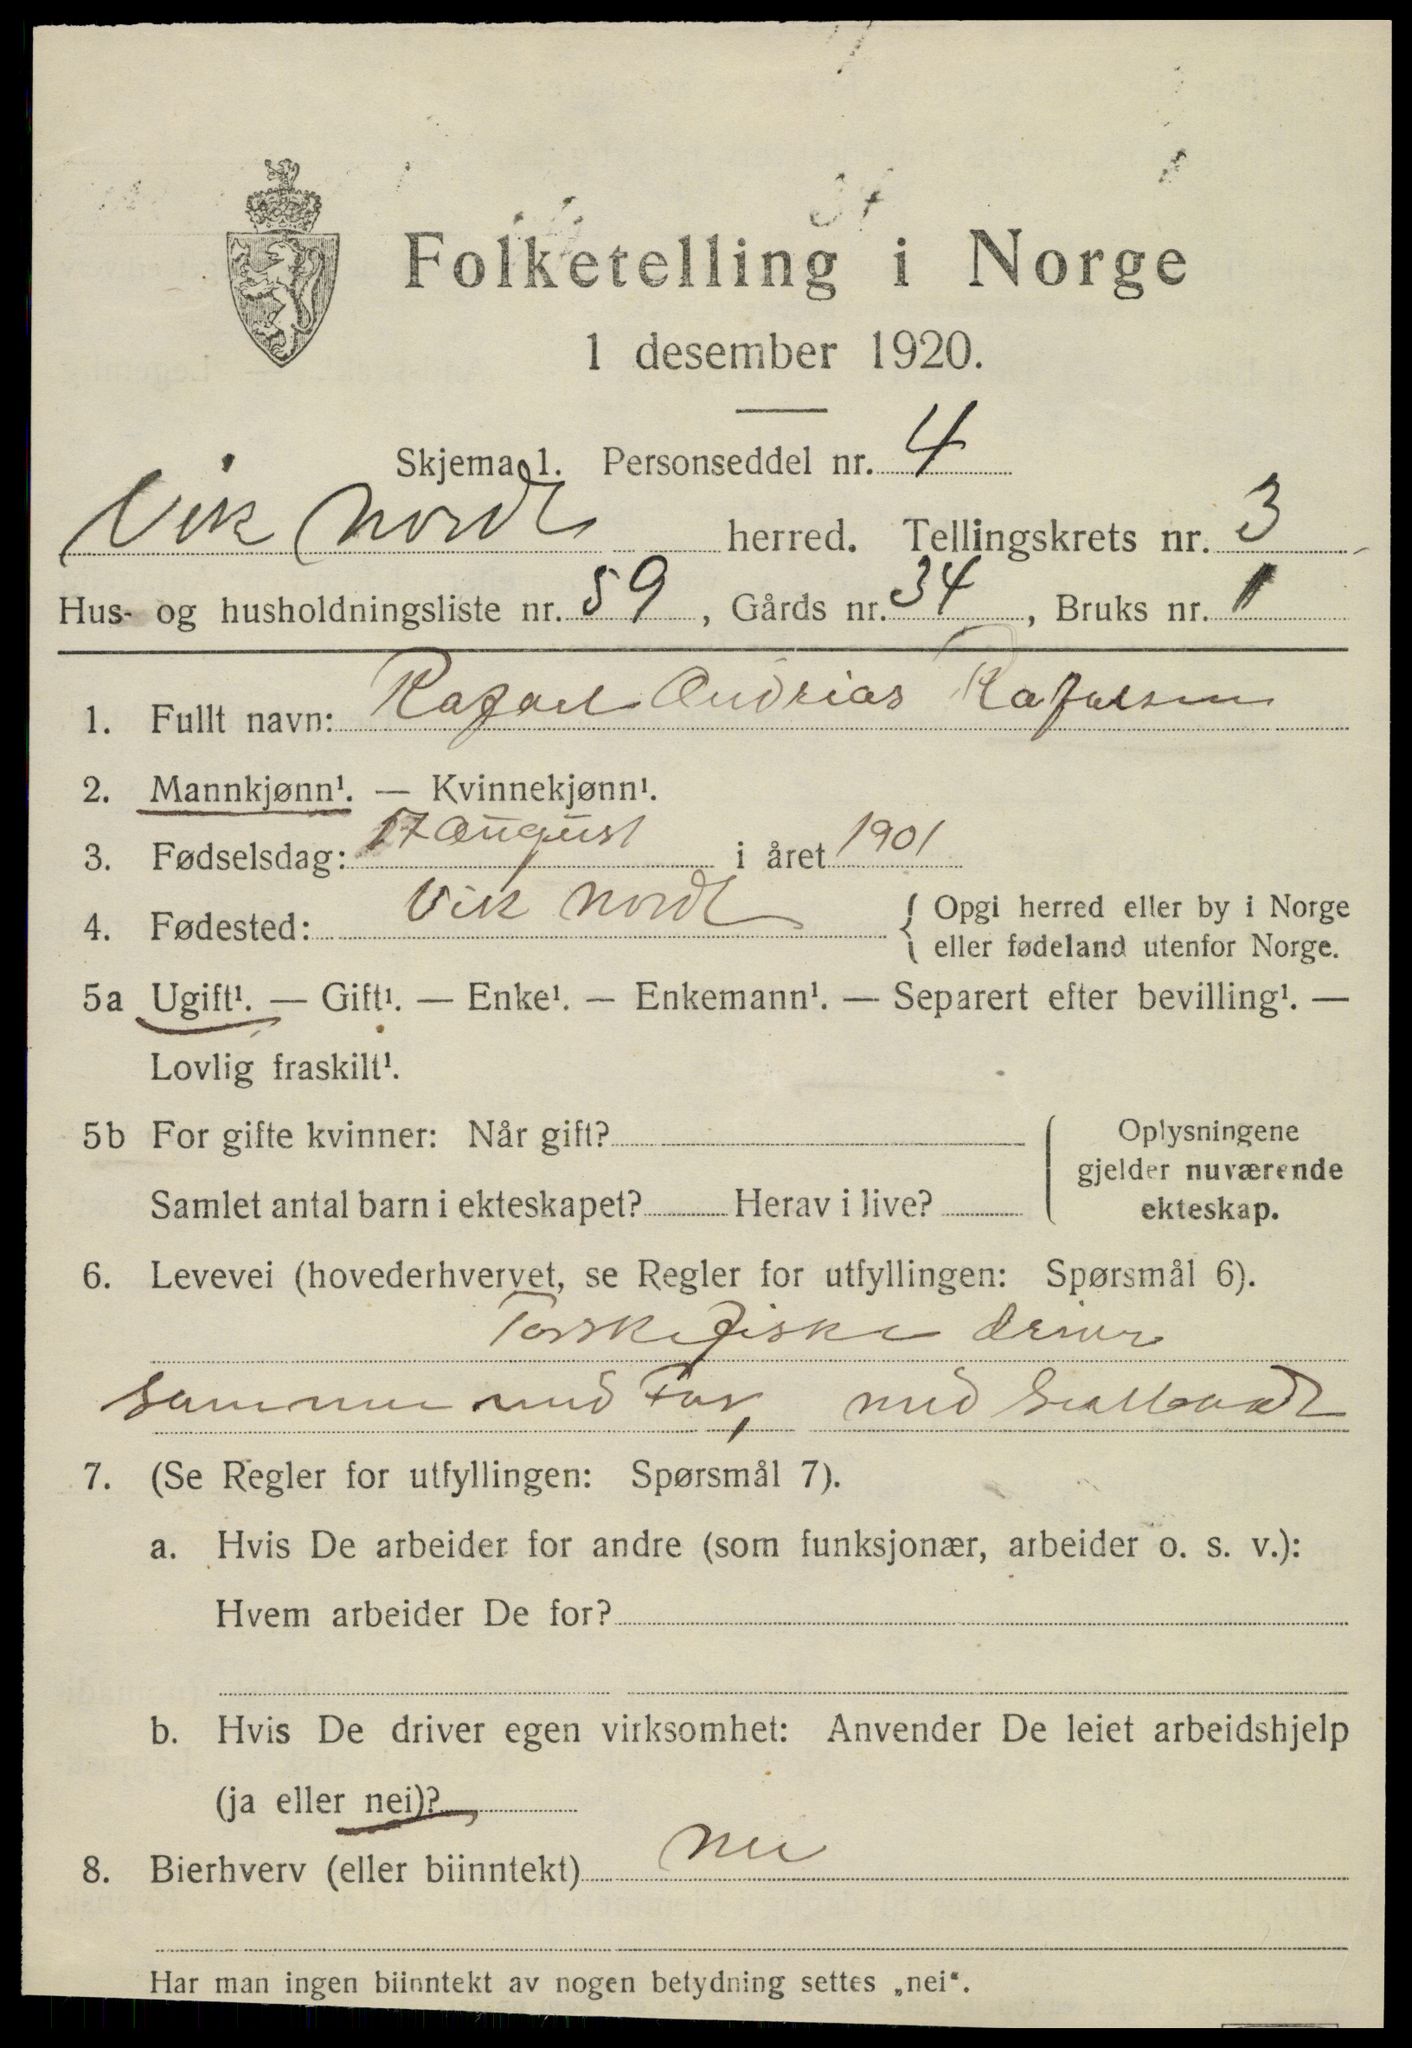 Folketelling i Norge
1 desember 1920.
Skjema 1. Personseddel nr. 4
Vik Nordl herred. Tellingskrets nr. 3
Hus- og husholdningsliste nr. 59, Gårds nr. 34, Bruks nr. 1
1. Fullt navn: Rafael Andrias Rafaelsen
2. Mannkjønn¹. — Kvinnekjønn¹.
3. Fødselsdag: 17 August i året 1901
4. Fødested: Vik Nordl { Opgi herred eller by i Norge
eller fødeland utenfor Norge.
5a Ugift¹. — Gift¹. — Enke¹. — Enkemann¹. — Separert efter bevilling¹. —
Lovlig fraskilt¹.
5b For gifte kvinner: Når gift? Oplysningene
gjelder nuværende
Samlet antal barn i ekteskapet? Herav i live? ekteskap.
6. Levevei (hovederhvervet, se Regler for utfyllingen: Spørsmål 6).
Torskefiske driver
sammen med Far, med
7. (Se Regler for utfyllingen: Spørsmål 7).
a. Hvis De arbeider for andre (som funksjonær, arbeider o. s. v.):
Hvem arbeider De for?
b. Hvis De driver egen virksomhet: Anvender De leiet arbeidshjelp
(ja eller nei)?
8. Bierhverv (eller biinntekt) nei
Har man ingen biinntekt av nogen betydning settes „nei“.